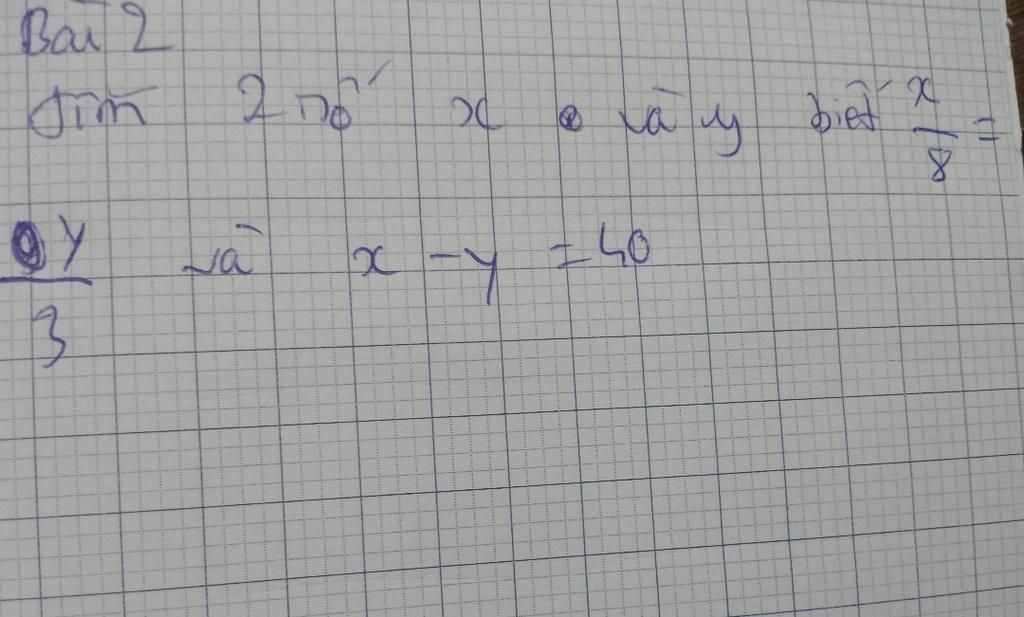 Bài 2
Tìm 2 số x và y biết x/8 =
y/3 và x - y = 40